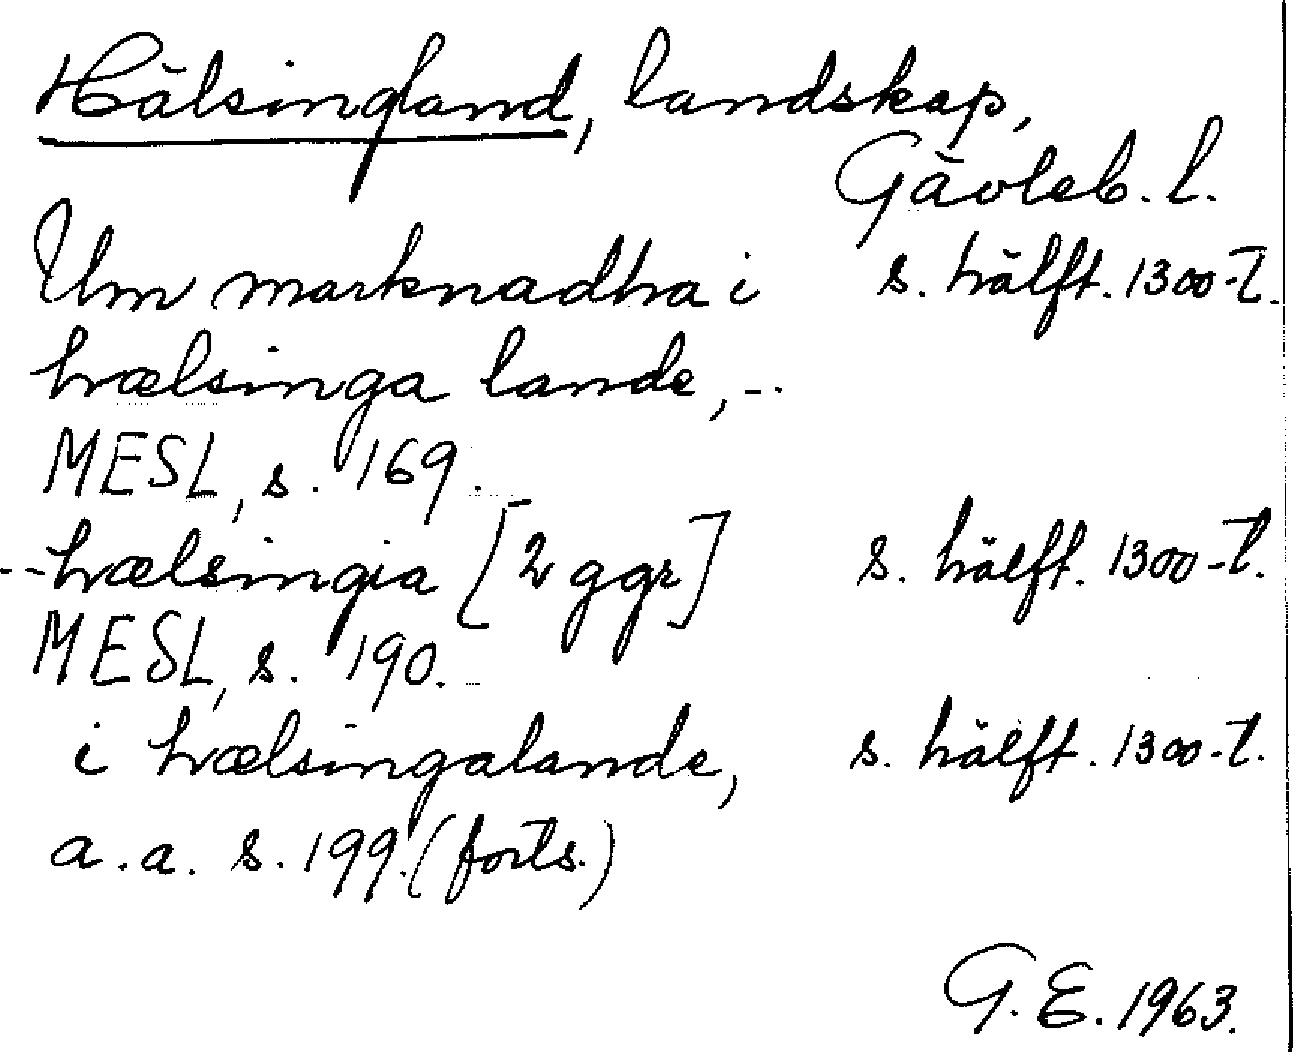 Hälsingland, landskap,
Gävleb. l.
Um marknadha i s. hälft. 1300-t.
hælsinga lande, --
MESL, s. 169.
--hælsingia [2 ggr] s. hälft. 1300-t.
MESL, s. 190.
i hælsingalande, s. hälft. 1300-t.
a.a. s. 199. (forts.)
G.E. 1963.